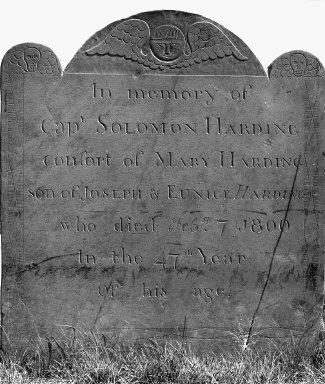 In memory of
Capt SOLOMON HARDING
consort of MARY HARDING
son of JOSEPH & EUNICE HARDING
who died 7 1800
In the 47th Year
of his age.